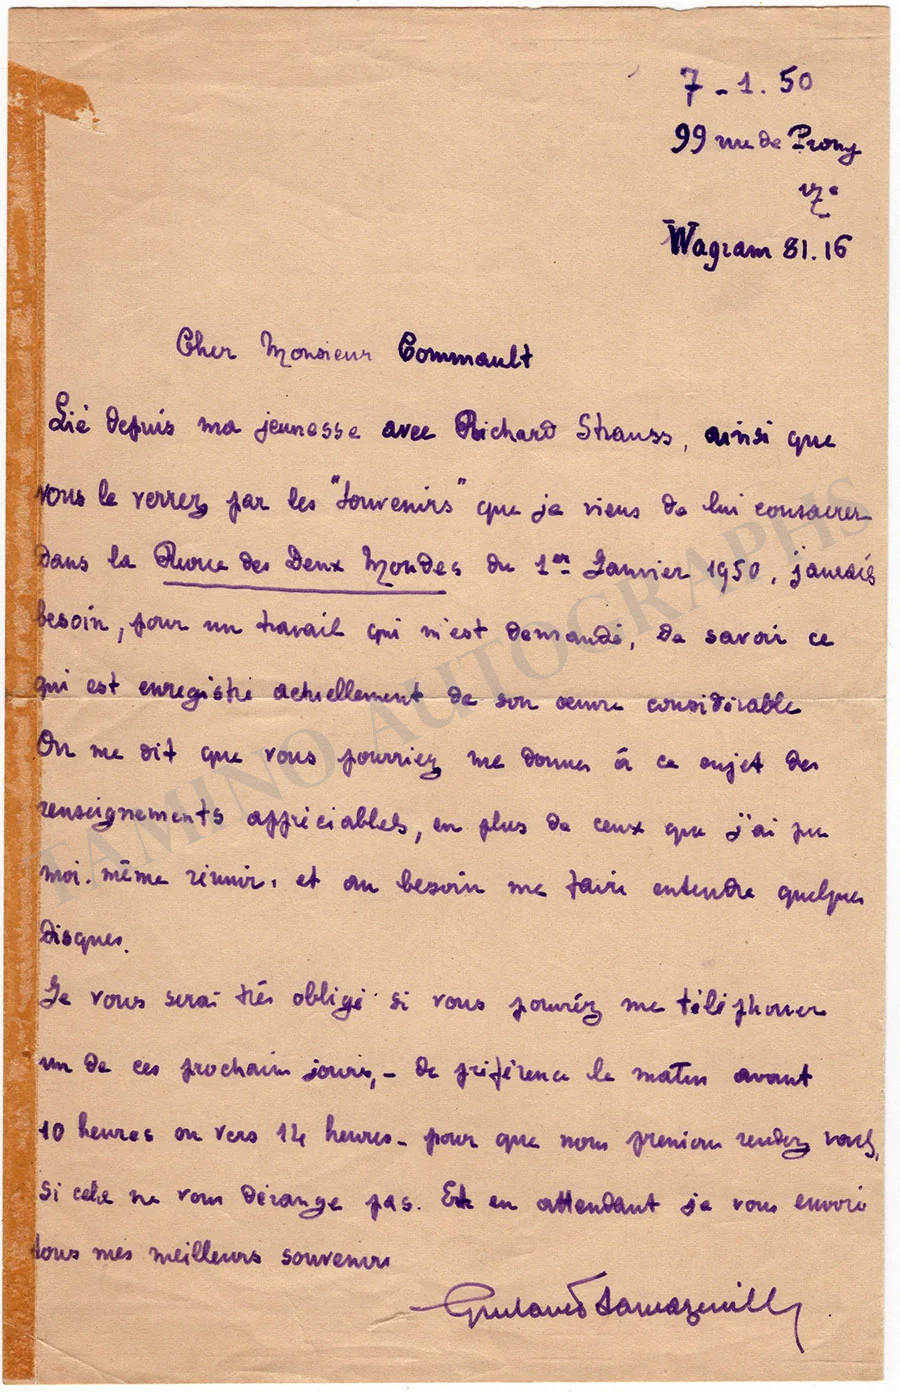 7 - 1. 50
99 rue de Prony
17e
Wagram 81.16
Cher Monsieur Commault
Lié depuis ma jeunesse avec Richard Strauss, ainsi que
vous le verrez par les "Souvenirs" que je viens de lui consacrer
dans la Revue des Deux Mondes du 1er Janvier 1950, j'aurais
besoin, pour un travail qui m'est demandé, de savoir ce
qui est enregistré actuellement de son œuvre considérable
On me dit que vous pourriez me donner à ce sujet des
renseignements appréciables, en plus de ceux que j'ai pu
moi-même réunir, et au besoin me faire entendre quelques
disques.
Je vous serai très obligé si vous pouvez me téléphoner
un de ces prochain jours, - de préférence le matin avant
10 heures ou vers 14 heures - pour que nous prenions rendez vous,
si cela ne vous dérange pas. Et en attendant je vous envoie
tous mes meilleurs souvenirs
Gustave Samazeuilh
TAMINO AUTOGRAPHS